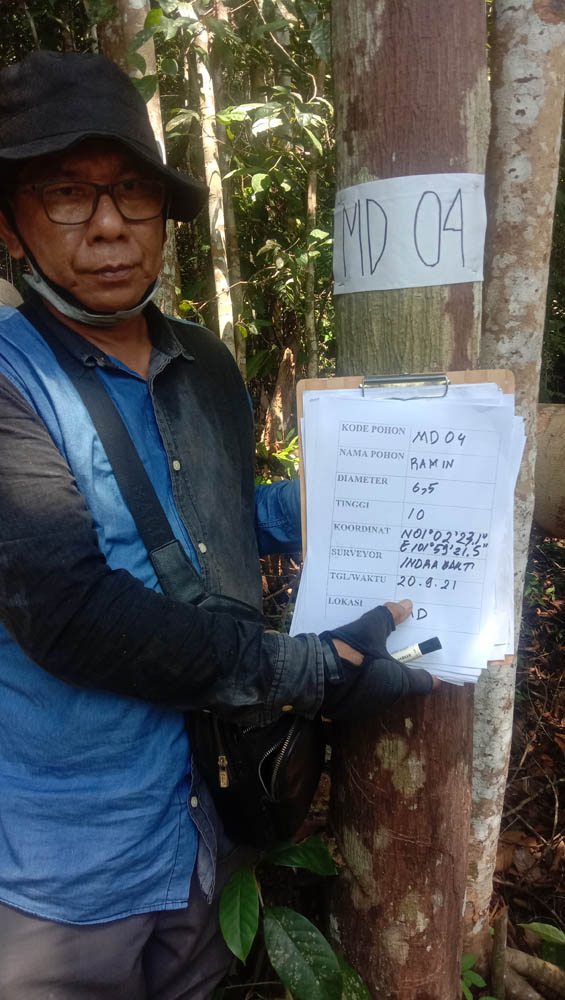 MD 04
KODE POHON MD 04
NAMA POHON RAMIN
DIAMETER 6,5
TINGGI 10
KOORDINAT N01°02'23.1"
E101°59'21.5"
SURVEYOR INDRA BAKTI
TGL/WAKTU 20.9.21
LOKASI MD